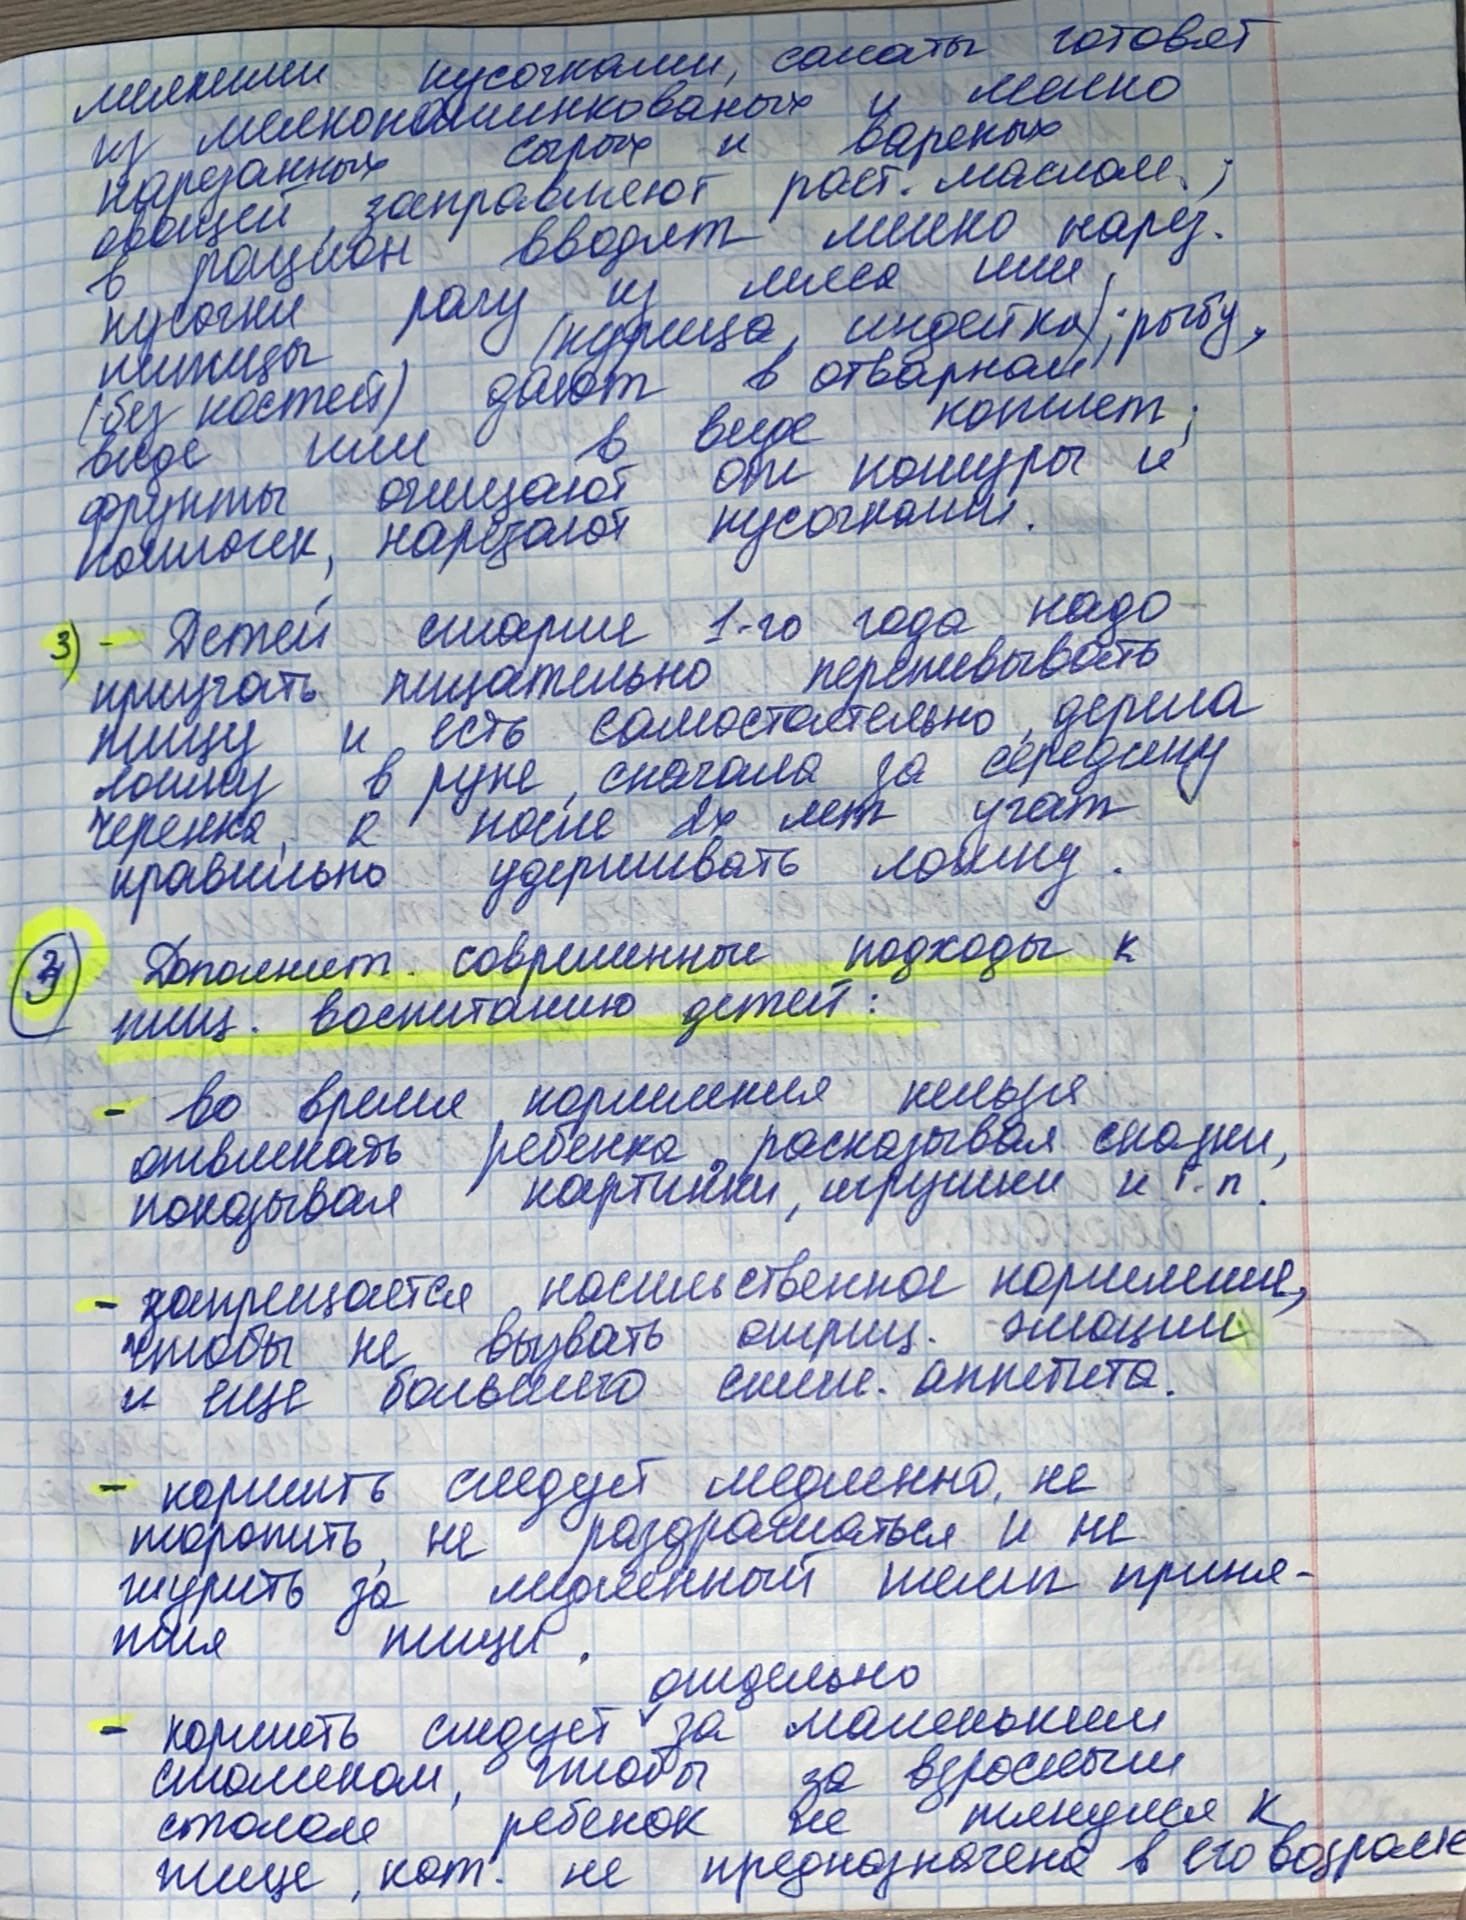 мелкими кусочками, салаты готовят
из мелконашинкованых и мелко
нарезанных сырых и вареных
овощей, заправляют раст. маслом;
в рацион вводят мелко нарез.
кусочки рагу из мяса или
птицы (курица, индейка); рыбу,
(без костей) дают в отварном
виде или в виде котлет;
фрукты очищают от кожуры и
косточек, нарезают кусочками.
3) - Детей старше 1-го года надо
приучать тщательно пережевывать
пищу и есть самостоятельно, держа
ложку в руке, сначала за середину
черенка, а после 2х лет учат
правильно удерживать ложку.
3 Дополнит. современные подходы к
пищ. воспитанию детей:
- во время кормления нельзя
отвлекать ребенка, расказывая сказки,
показывая картинки, игрушки и т.п.
- запрещается насильственное кормление,
чтобы не вызвать отриц. эмоции
и еще большего сниж. аппетита.
- кормить следует медленно, не
торопить, не раздражаться и не
журить за медленный темп приня-
тия пищи.
отдельно
- кормить следует за маленьким
столиком, чтобы за взрослым
столом ребенок не тянулся к
пище, кот. не предназначена в его возрасте